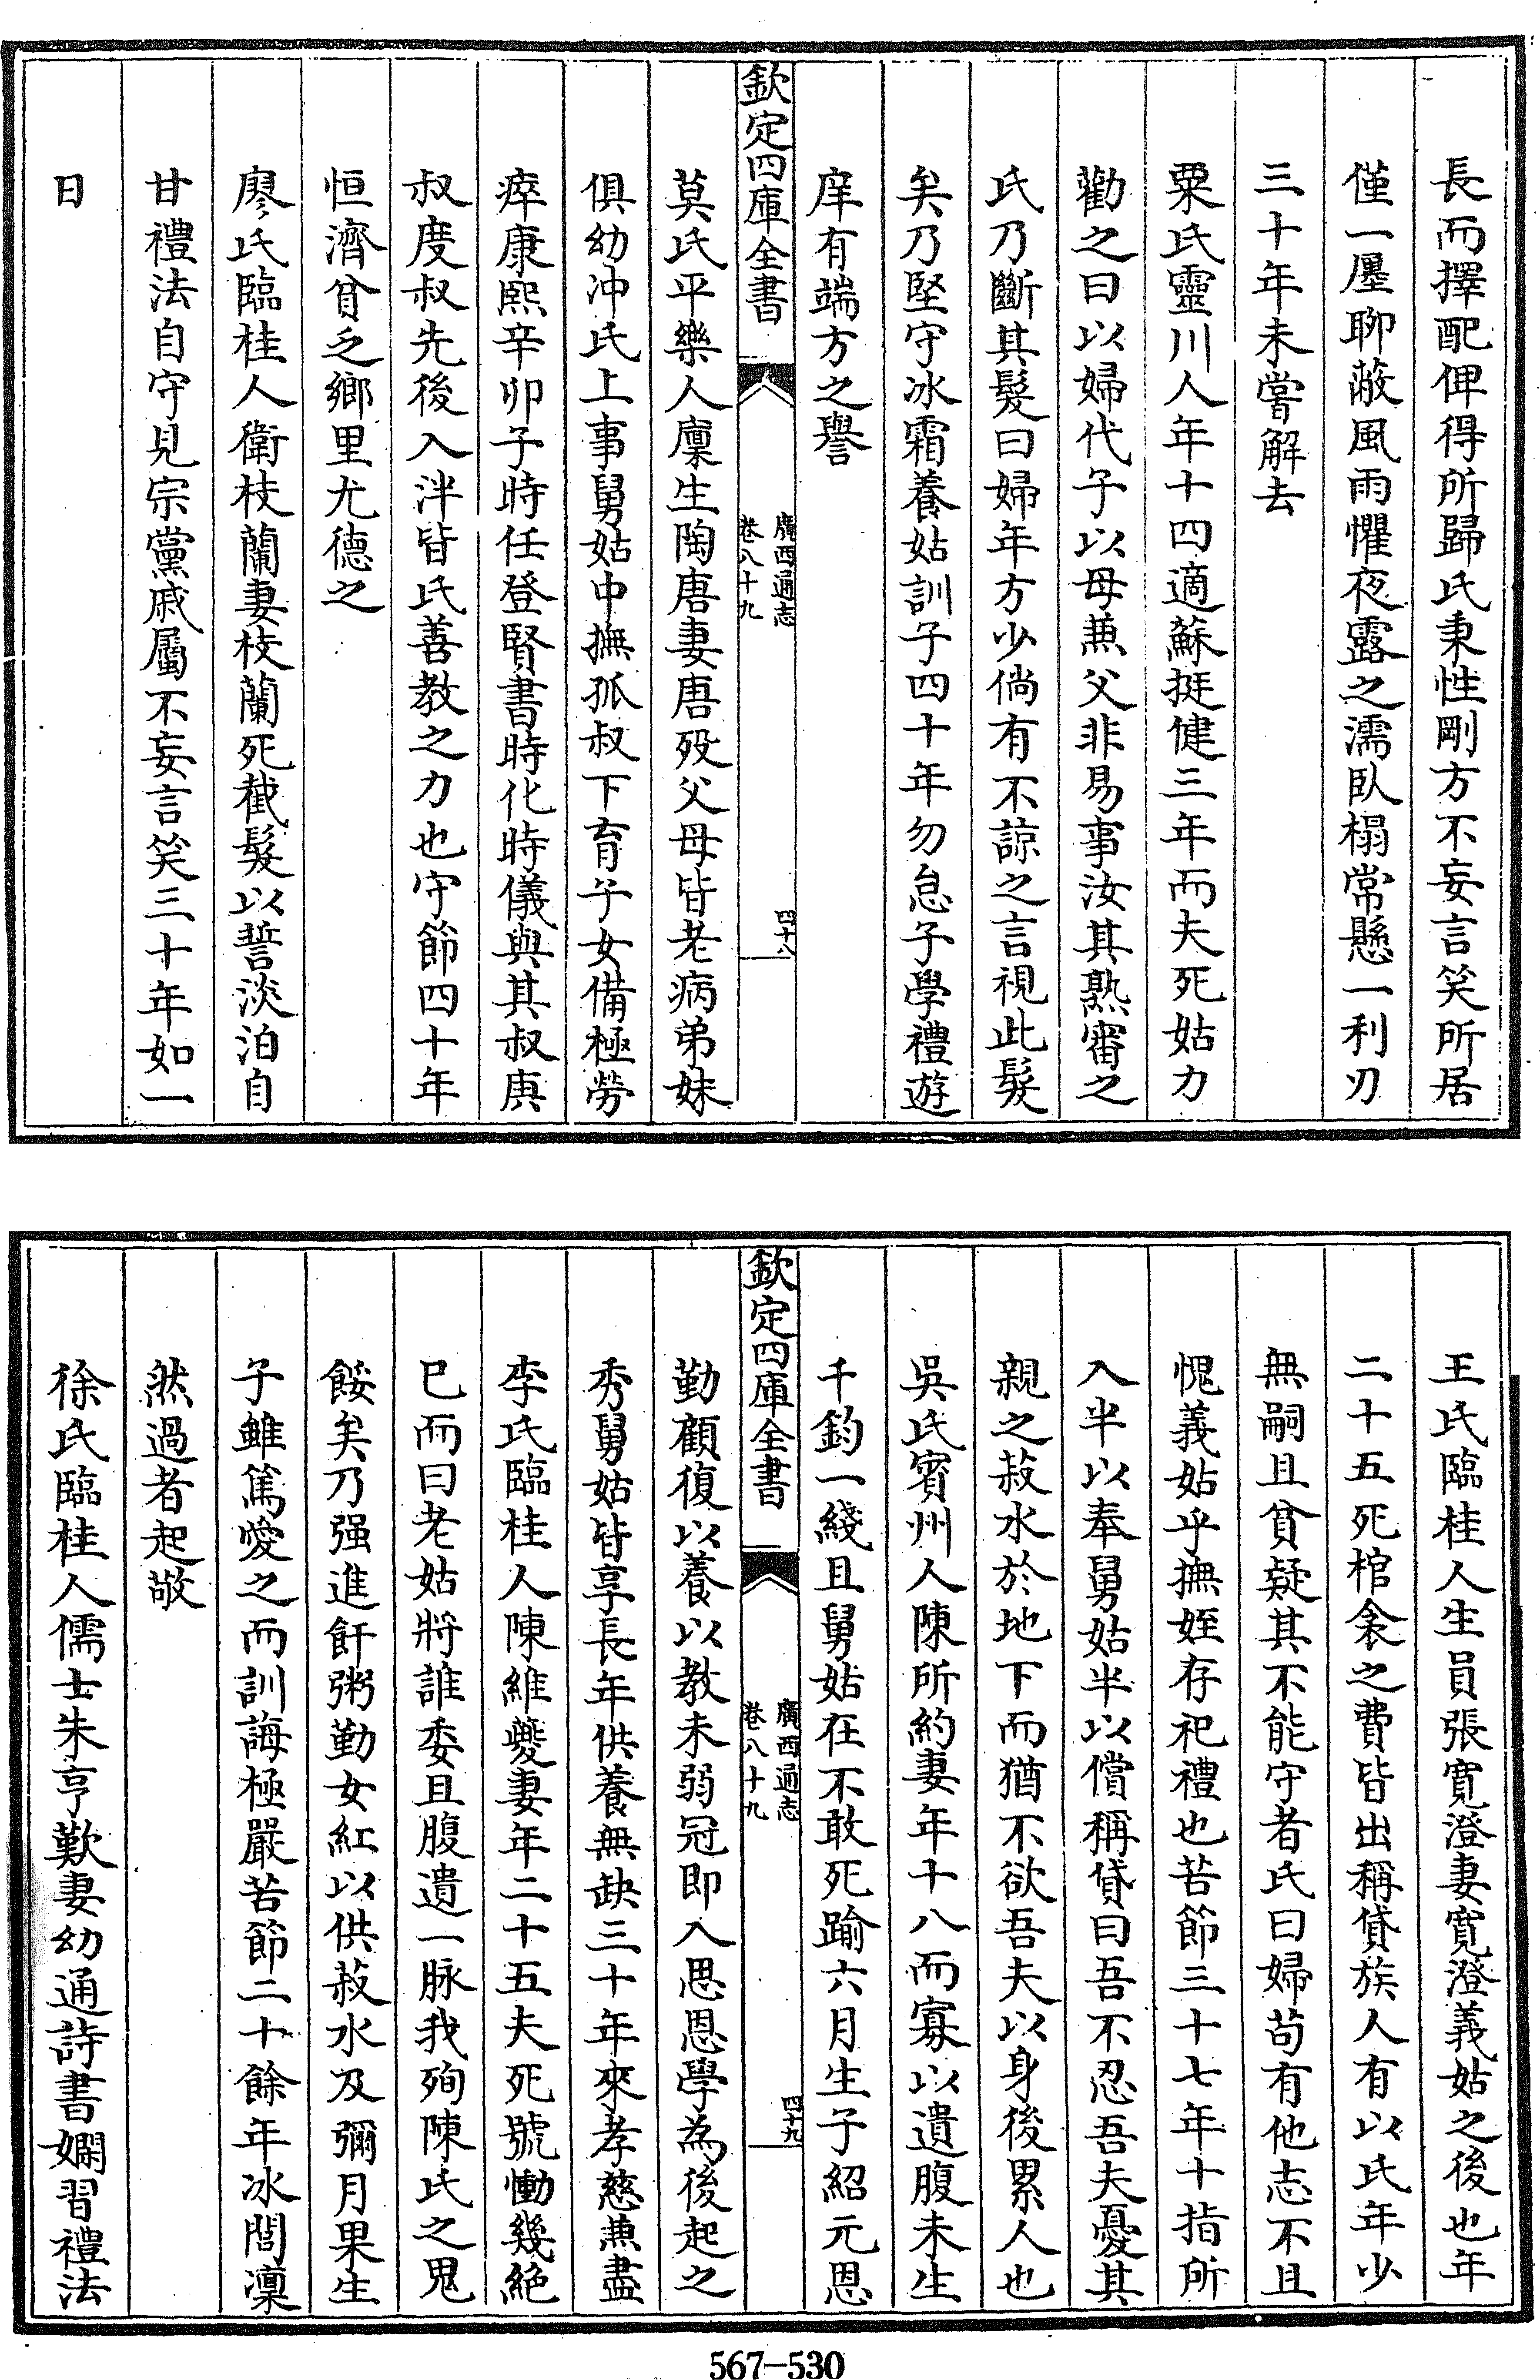 長而擇配俾得所歸氏秉性剛方不妄言笑所居
僅一廛聊蔽風雨懼夜露之濡臥榻常懸一利刃
三十年未嘗解去
粟氏靈川人年十四適蘇挺健三年而夫死姑力
勸之曰以婦代子以母兼父非易事汝其熟審之
氏乃斷其髮曰婦年方少倘有不諒之言視此髮
矣乃堅守冰霜養姑訓子四十年勿怠子學禮遊
庠有端方之譽
欽定四庫全書
廣西通志
卷八十九
四十八
莫氏平樂人廩生陶唐妻唐歿父母皆老病弟妹
俱幼冲氏上事舅姑中撫孤叔下育子女備極勞
瘁康熙辛卯子時任登賢書時化時儀與其叔賡
叔度叔先後入泮皆氏善教之力也守節四十年
恒濟貧乏鄉里尤德之
廖氏臨桂人衛枝蘭妻枝蘭死截髮以誓淡泊自
甘禮法自守見宗黨戚屬不妄言笑三十年如一
日
王氏臨桂人生員張寬澄妻寬澄義姑之後也年
二十五死棺衾之費皆出稱貸族人有以氏年少
無嗣且貧疑其不能守者氏曰婦苟有他志不且
愧義姑乎撫姪存祀禮也苦節三十七年十指所
入半以奉舅姑半以償稱貸曰吾不忍吾夫憂其
親之菽水於地下而猶不欲吾夫以身後累人也
吳氏賓州人陳所約妻年十八而寡以遺腹未生
千鈞一綫且舅姑在不敢死踰六月生子紹元恩
欽定四庫全書
廣西通志
卷八十九
四十九
勤顧復以養以教未弱冠即入思恩學為後起之
秀舅姑皆享長年供養無缺三十年來孝慈兼盡
李氏臨桂人陳維夔妻年二十五夫死號慟幾絕
已而曰老姑將誰委且腹遺一脉我殉陳氏之鬼
餒矣乃强進飦粥勤女紅以供菽水及彌月果生
子雖篤愛之而訓誨極嚴苦節二十餘年冰閨凜
然過者起敬
徐氏臨桂人儒士朱亨歎妻幼通詩書嫻習禮法
567-530